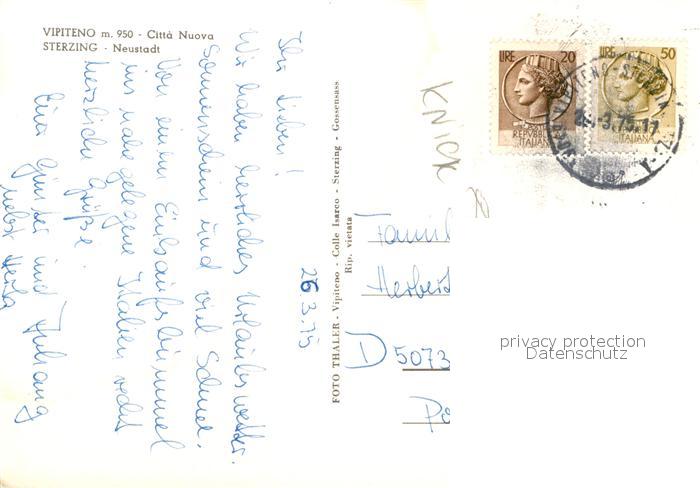 VIPITENO m. 950 - Città Nuova
STERZING - Neustadt
26.3.75
Ihr Lieben!
Wir haben herrliches Urlaubswetter.
Sonnenschein und viel Schnee.
Von einem Einkaufsbummel
ins nahe gelegene Italien recht
herzliche Grüße
Eure Günter und
nebst
FOTO THALER - Vipiteno - Colle Isarco - Sterzing - Gossensass
Rip. vietata
KNICK
LIRE 20
REPUBBLICA
ITALIANA
LIRE 50
ITALIANA
3.75.11
Famil
Herbert
D 5073
privacy protection
Datenschutz